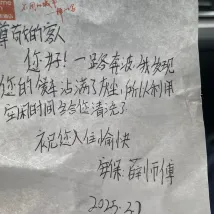 尊敬的客人
您好！一路奔波，我发现
您的爱车沾满了灰尘，所以利用
空闲的时间
您清洗了
祝您入住愉快
安保：薛师傅
2025.3.1